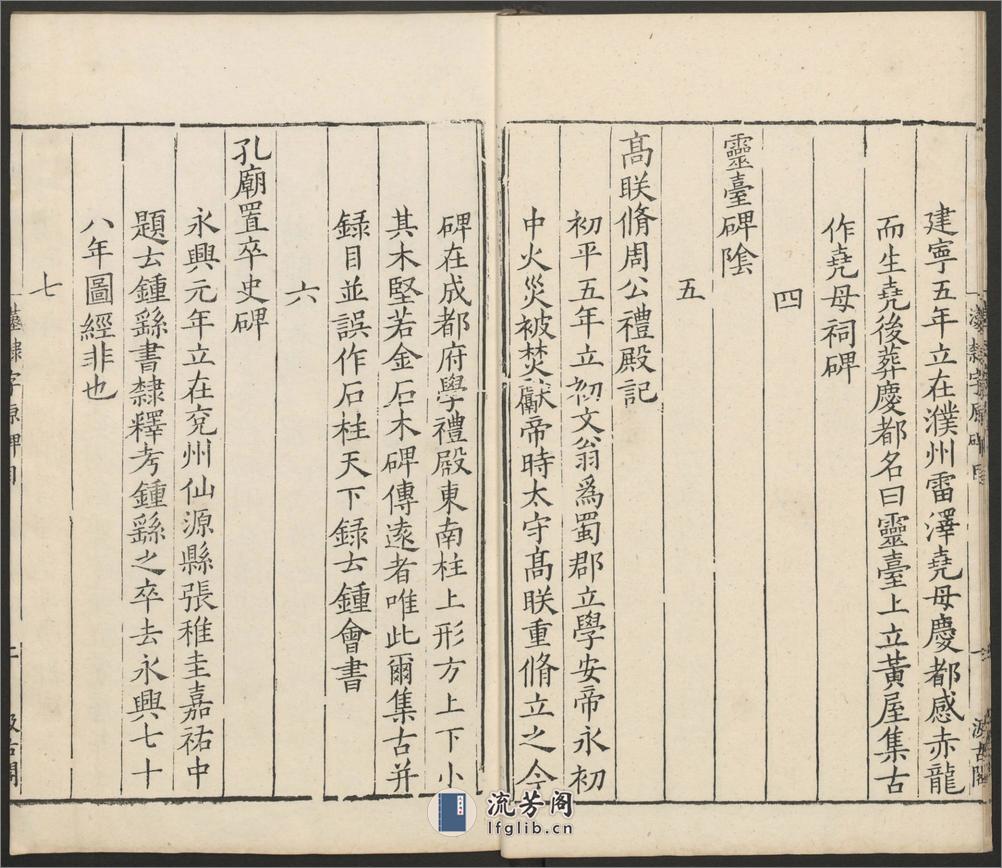 建寧五年立在濮州雷澤堯母慶都感赤龍
而生堯後葬慶都名曰靈臺上立黃屋集古
作堯母祠碑
四
靈臺碑隂
五
髙眹脩周公禮殿記
初平五年立初文翁爲蜀郡立學安帝永初
中火災被焚獻帝時太守髙眹重脩立之今
碑在成都府學禮殿東南柱上形方上下小
其木堅若金石木碑傳逺者唯此爾集古并
録目並誤作石柱天下録云鍾會書
六
孔廟置卒史碑
永興元年立在兖州仙源縣張稚圭嘉祐中
題云鍾繇書隸釋考鍾繇之卒去永興七十
八年圖經非也
七
流芳阁
lfglib.cn